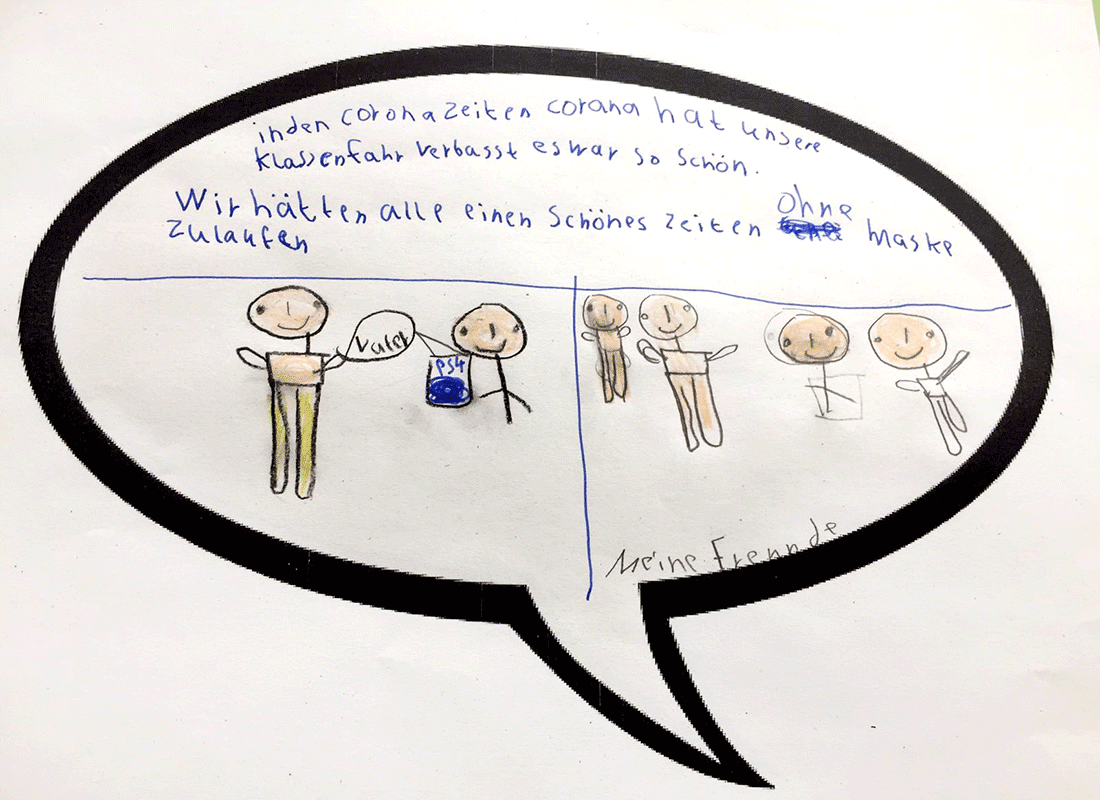 inden coronazeiten corana hat unsere
klassenfahr verbasst es war so schön.
Wir hätten alle einen schönes zeiten ohne maske
zulaufen
Vater
PS4
Meine Freunde